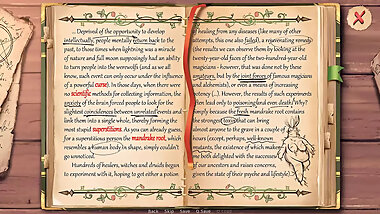 ... Deprived of the opportunity to develop
intellectually, people mentally return back to the
past, to those times when lightning was a miracle
of nature and full moon supposedly had an ability
to turn people into the werewolf (and as we all
know, such event can only occur under the influence
of a powerful curse). In those days, when there were
no scientific methods for collecting information, the
anxiety of the brain forced people to look for the
slightest coincidences between unrelated events and
link them into a single whole, thereby forming the
most stupid superstitions. As you can already guess,
for a superstitious person the mandrake root, which
resembles a human body in shape, simply couldn't
go unnoticed.
Hundreds of healers, witches and druids began
to experiment with it, hoping to get either a potion
of healing from any diseases (like many of other
attempts, this one also failed), a rejuvenating remedy
(the results we can observe them by looking at the
twenty-year-old faces of the two-hundred-year-old
magicians - however, that was done not by these
amateurs, but by the joint forces of famous magicians
and alchemists), or even a means of increasing
potency (...). However, the results of such experiments
often lead only to poisoning and even death. Why?
Simply because the fresh mandrake root contains
the strongest toxin that can bring
almost anyone to the grave in a couple of
hours (except, perhaps, well-known
mutants, the existence of which makes
me both delighted with the successes
of our ancestors and raises concerns,
given the state of their psyche and lifestyle).
Back Skip Save Q.Save Q.Load